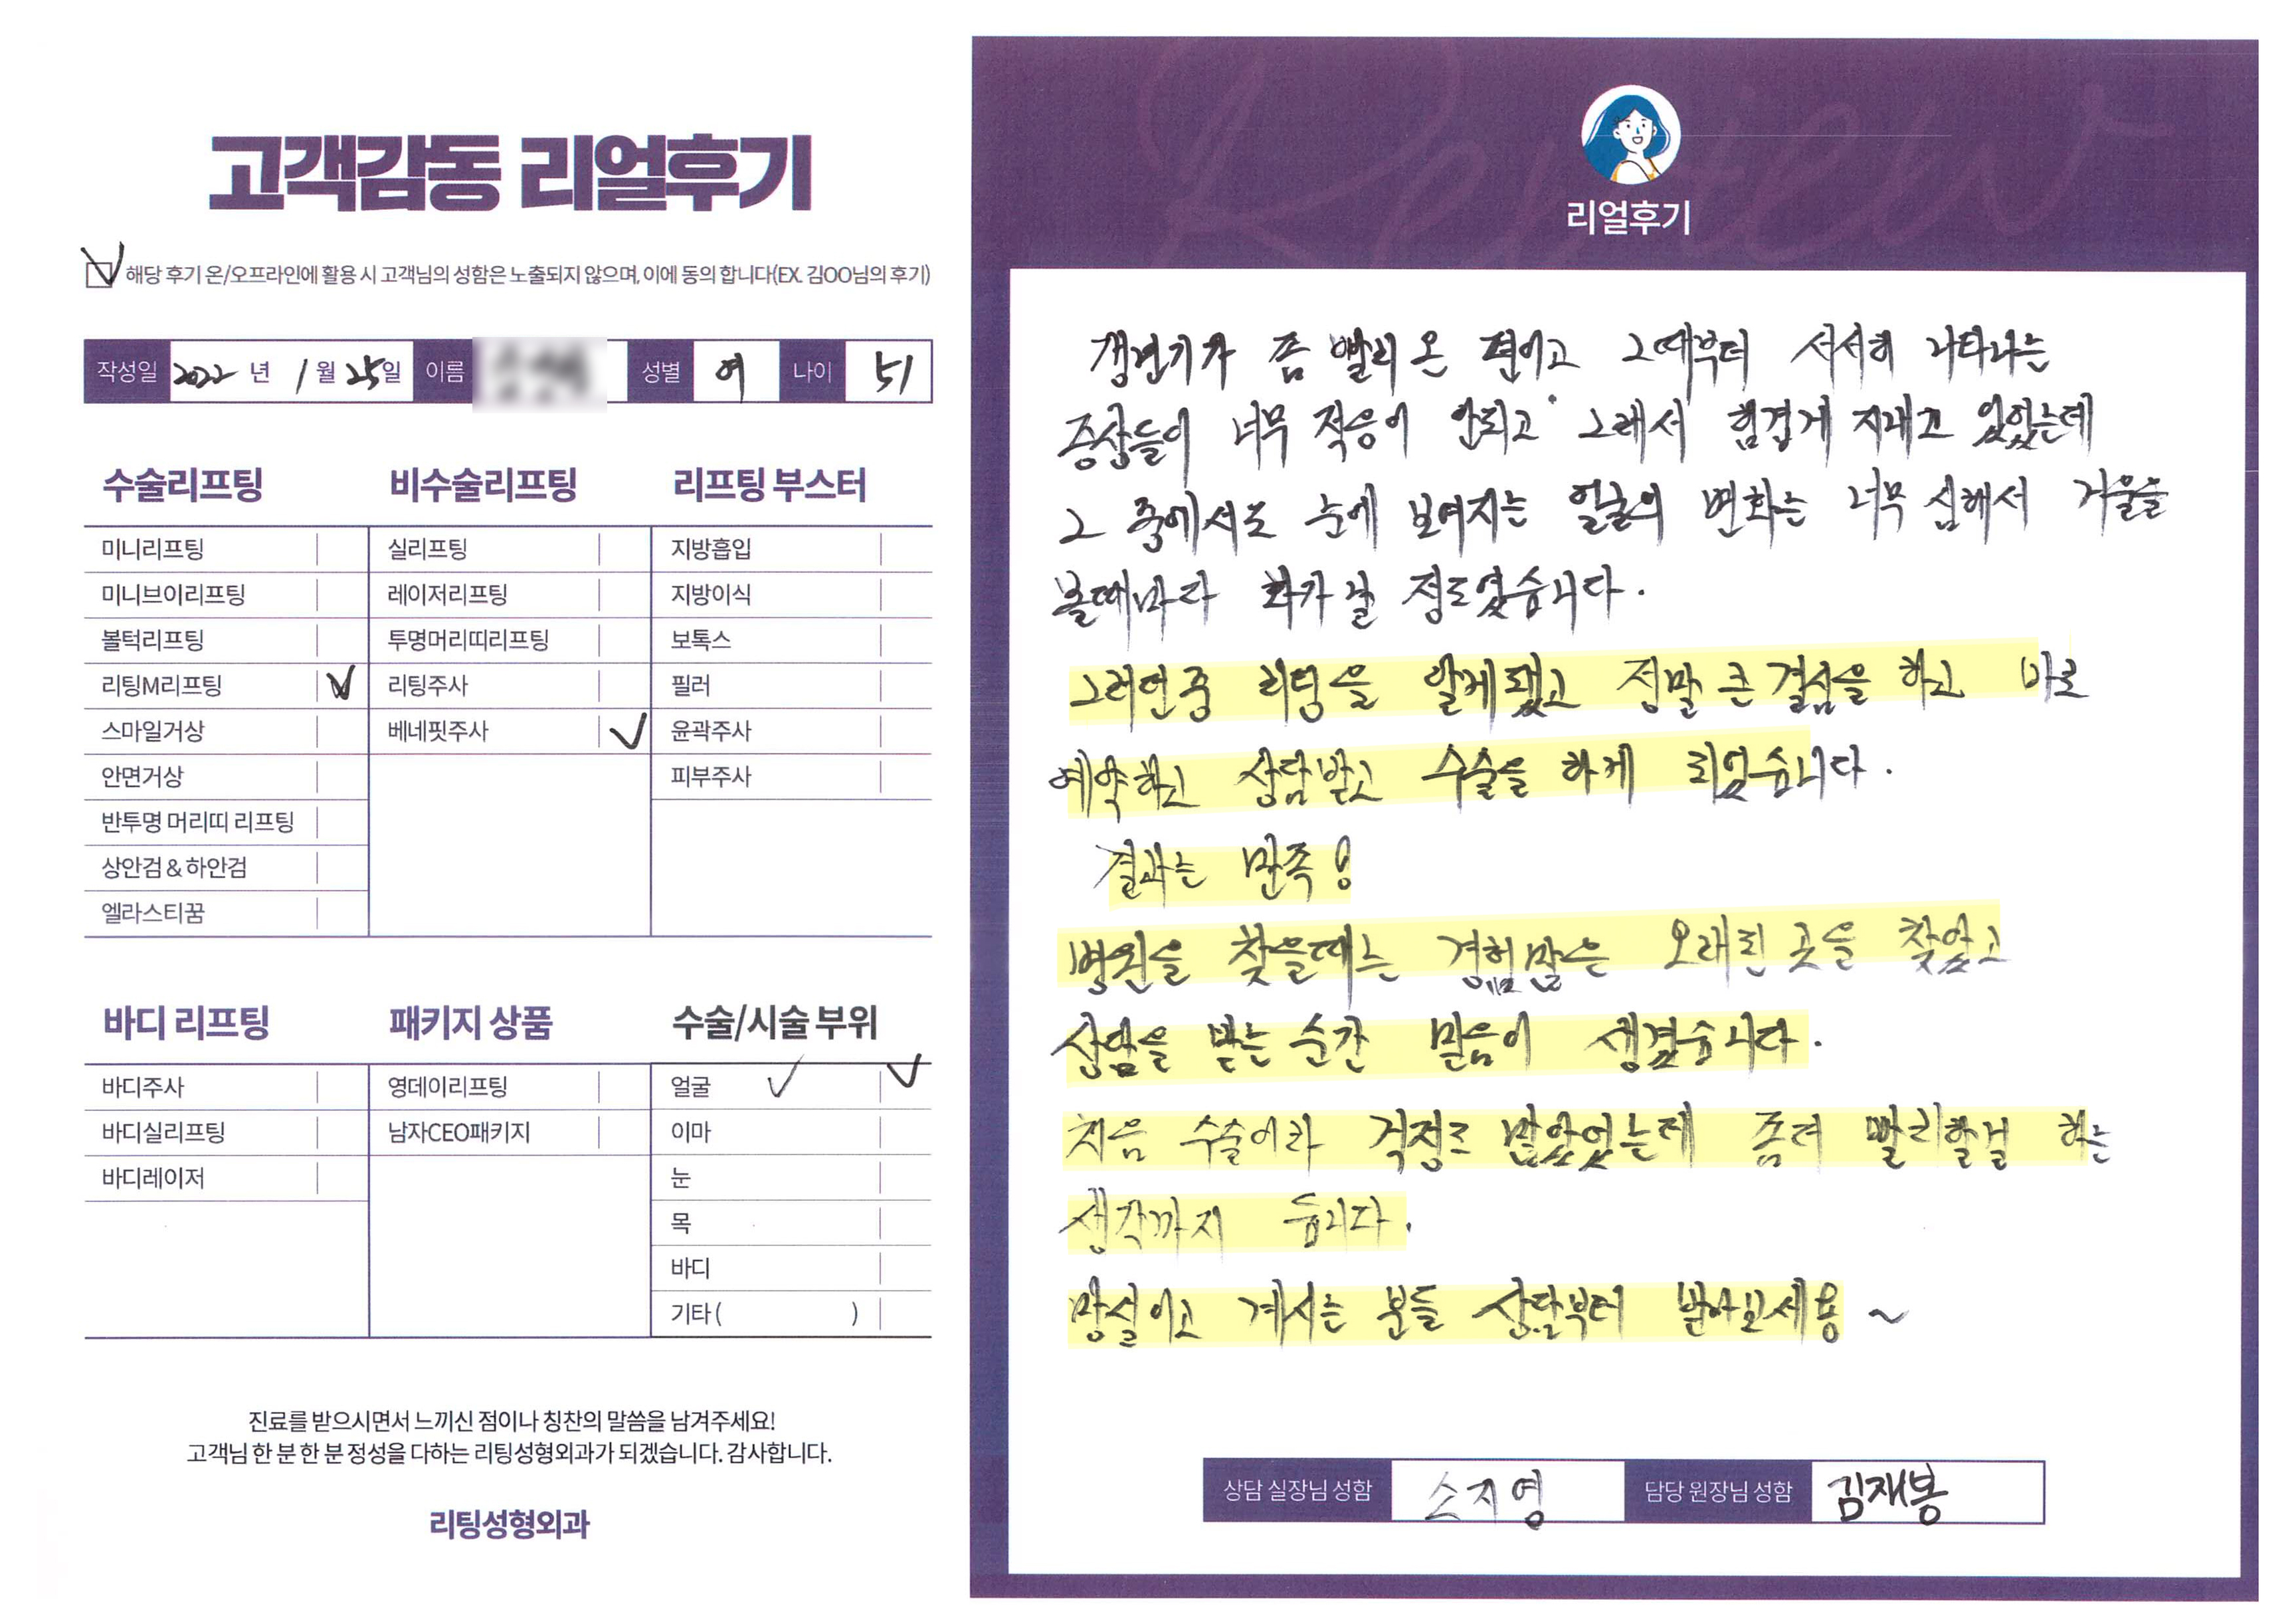 고객감동 리얼후기
해당 후기 온/오프라인에 활용 시 고객님의 성함은 노출되지 않으며, 이에 동의 합니다(EX. 김OO님의 후기)
작성일 2022 년 1 월 25 일 이름 성별 여 나이 51
수술리프팅
미니리프팅
미니브이리프팅
볼턱리프팅
리팅M리프팅
스마일거상
안면거상
반투명 머리띠 리프팅
상안검 & 하안검
엘라스티꿈
비수술리프팅
실리프팅
레이저리프팅
투명머리띠리프팅
리팅주사
베네핏주사
리프팅 부스터
지방흡입
지방이식
보톡스
필러
윤곽주사
피부주사
바디 리프팅
바디주사
바디실리프팅
바디레이저
패키지 상품
영데이리프팅
남자CEO패키지
수술/시술 부위
얼굴
이마
눈
목
바디
기타 ( )
진료를 받으시면서 느끼신 점이나 칭찬의 말씀을 남겨주세요!
고객님 한 분 한 분 정성을 다하는 리팅성형외과가 되겠습니다. 감사합니다.
리팅성형외과
Review
리얼후기
갱년기가 좀 빨리 온 편이고 그때부터 서서히 나타나는
증상들이 너무 적응이 안되고 그래서 힘겹게 지내고 있었는데
그 중에서도 눈에 보여지는 얼굴의 변화는 너무 심해서 거울을
볼때마다 화가 날 정도였습니다.
그러던중 리팅을 알게됐고 정말 큰 결심을 하고 바로
예약하고 상담받고 수술을 하게 되었습니다.
결과는 만족!
병원을 찾을때는 경험많은 오래된 곳을 찾았고
상담을 받는 순간 믿음이 생겼습니다.
처음 수술이라 걱정도 많았었는데 좀더 빨리할걸 하는
생각까지 듭니다.
망설이고 계시는 분들 상담부터 받아보세용 ~
상담 실장님 성함 소지영 담당 원장님 성함 김재봉